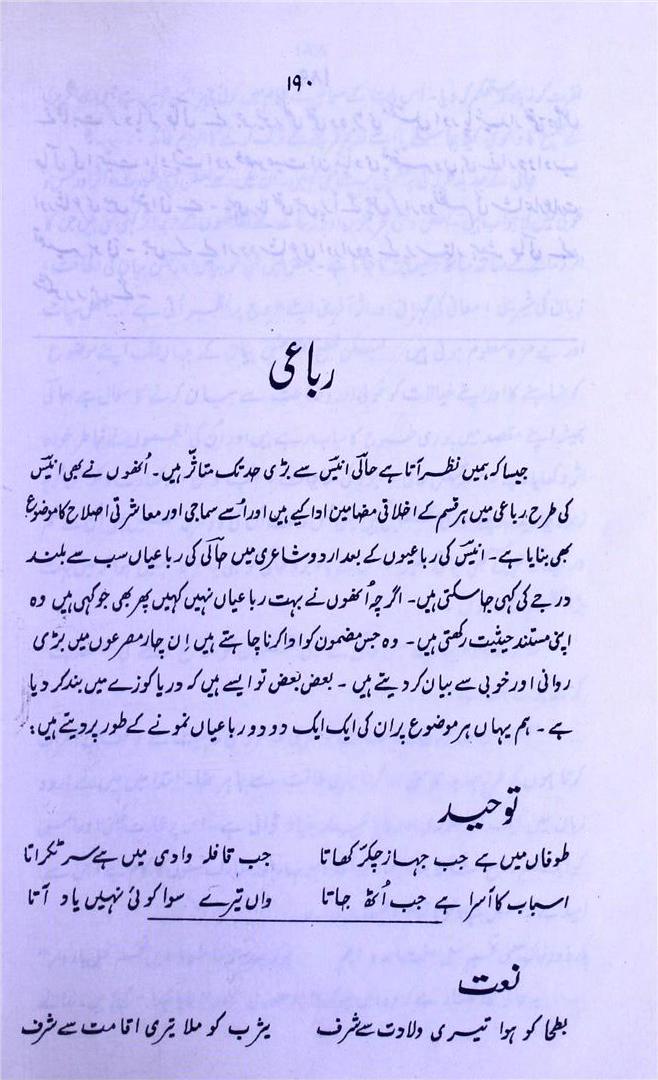 ۱۹۰
رباعی
جیسا کہ ہمیں نظر آتا ہے حالی انیس سے بڑی حد تک متاثر ہیں۔ اُنھوں نے بھی انیس
کی طرح رباعی میں ہر قسم کے اخلاقی مضامین ادا کیے ہیں اور اُسے سماجی اور معاشرتی اصلاح کا موضوع
بھی بنایا ہے۔ انیس کی رباعیوں کے بعد اردو شاعری میں حالی کی رباعیاں سب سے بلند
درجے کی کہی جا سکتی ہیں۔ اگرچہ اُنھوں نے بہت رباعیاں نہیں کہیں پھر بھی جو کہی ہیں وہ
اپنی مستند حیثیت رکھتی ہیں۔ وہ جس مضمون کو ادا کرنا چاہتے ہیں اِن چار مصرعوں میں بڑی
روانی اور خوبی سے بیان کر دیتے ہیں۔ بعض بعض تو ایسے ہیں کہ دریا کوزے میں بند کر دیا
ہے۔ ہم یہاں ہر موضوع پر ان کی ایک ایک دو دو رباعیاں نمونے کے طور پر دیتے ہیں:
توحید
طوفاں میں ہے جب جہاز چکّر کھاتا جب قافلہ وادی میں ہے سر ٹکراتا
اسباب کا آسرا ہے جب اُٹھ جاتا واں تیرے سوا کوئی نہیں یاد آتا
نعت
بطحا کو ہوا تیری ولادت سے شرف یثرب کو ملا تیری اقامت سے شرف